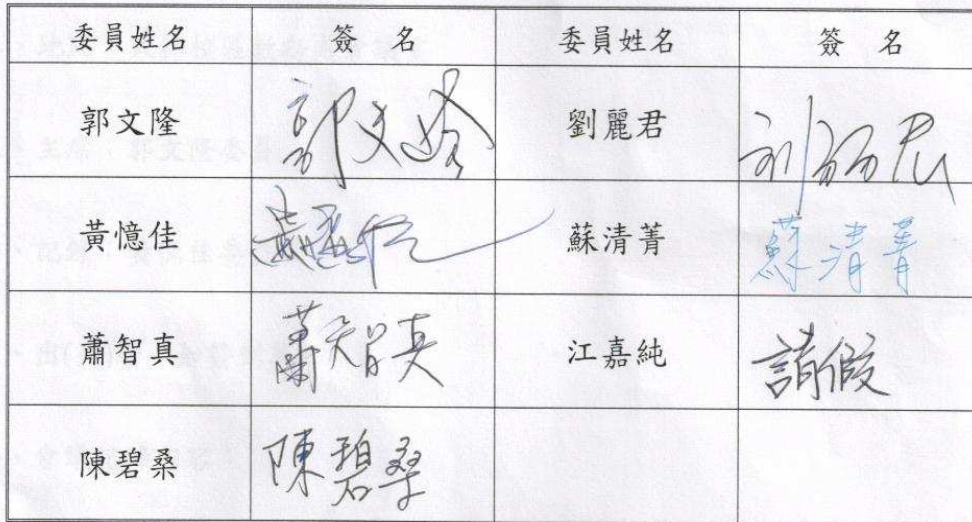 委員姓名 簽 名 委員姓名 簽 名
郭文隆 郭文隆 劉麗君 刘丽君
黃憶佳 蘇清菁 蘇清菁
蕭智真 蕭智真 江嘉純 請假
陳碧桑 陳碧桑